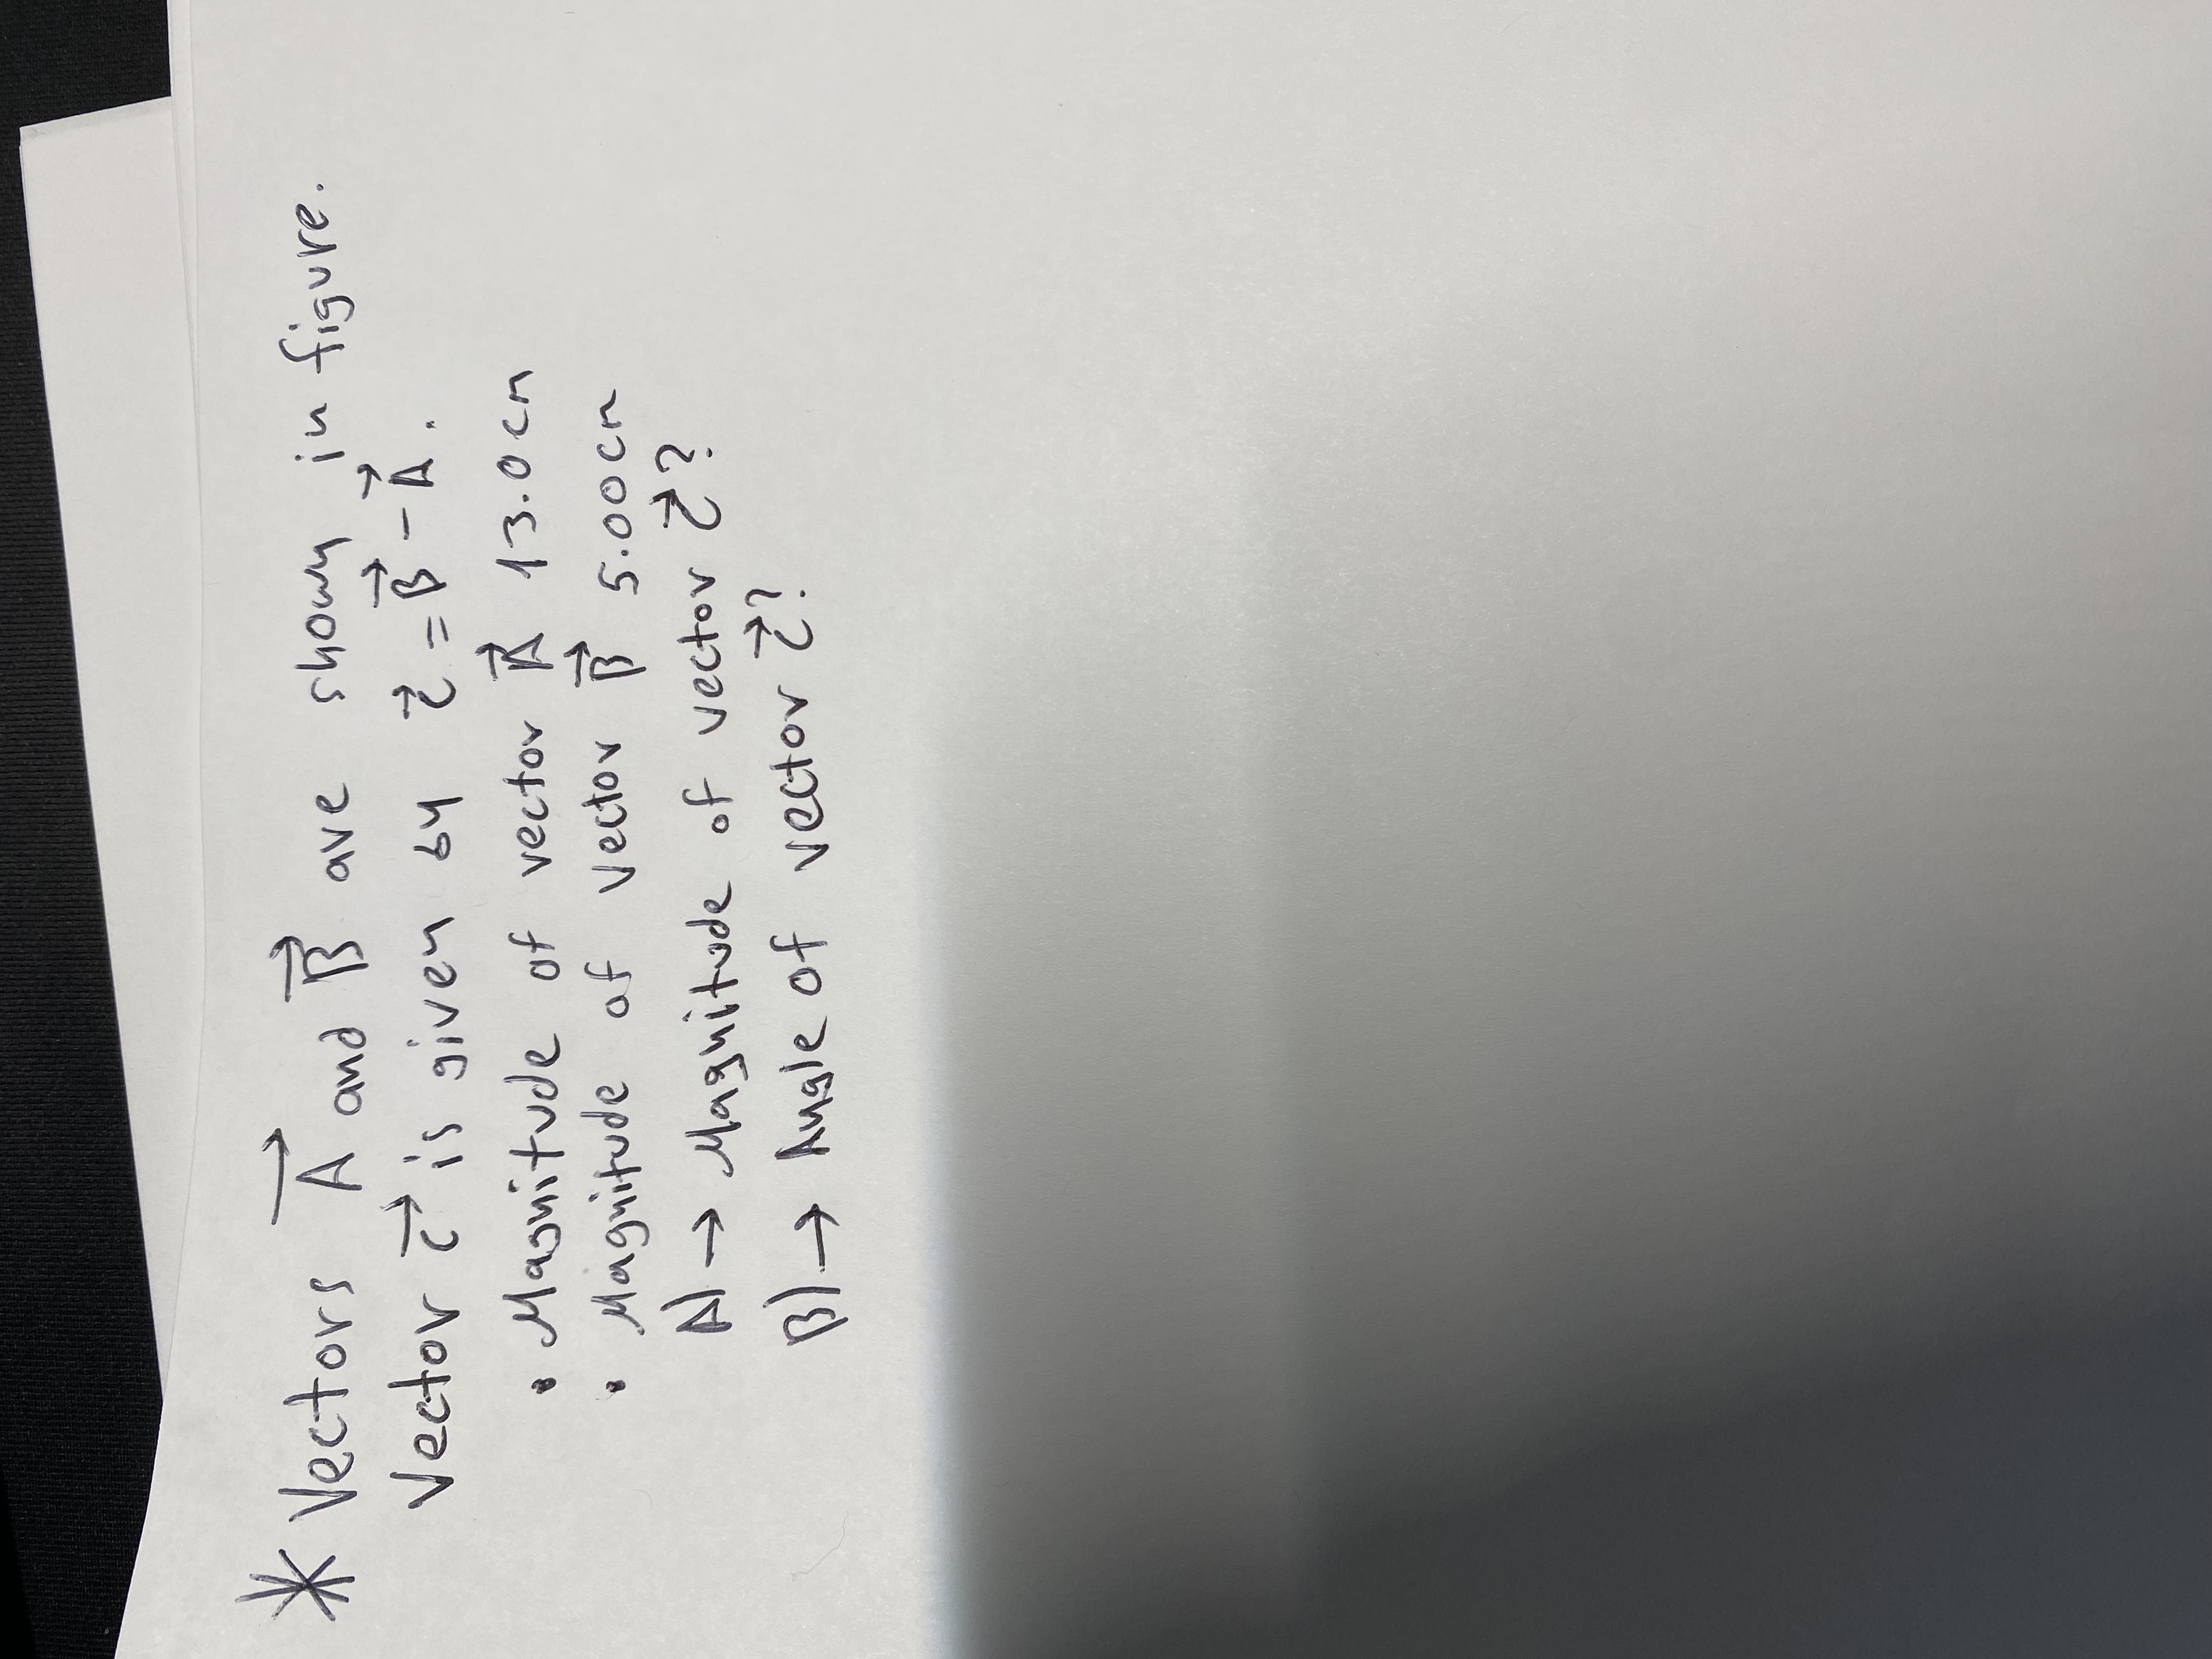 * Vectors A⃗ and B⃗ are shown in figure.
Vector C⃗ is given by C⃗ = B⃗ - A⃗.
• Magnitude of vector A⃗ 13.0cm
• Magnitude of vector B⃗ 5.00cm
A) → Magnitude of vector C⃗?
B) → Angle of vector C⃗?